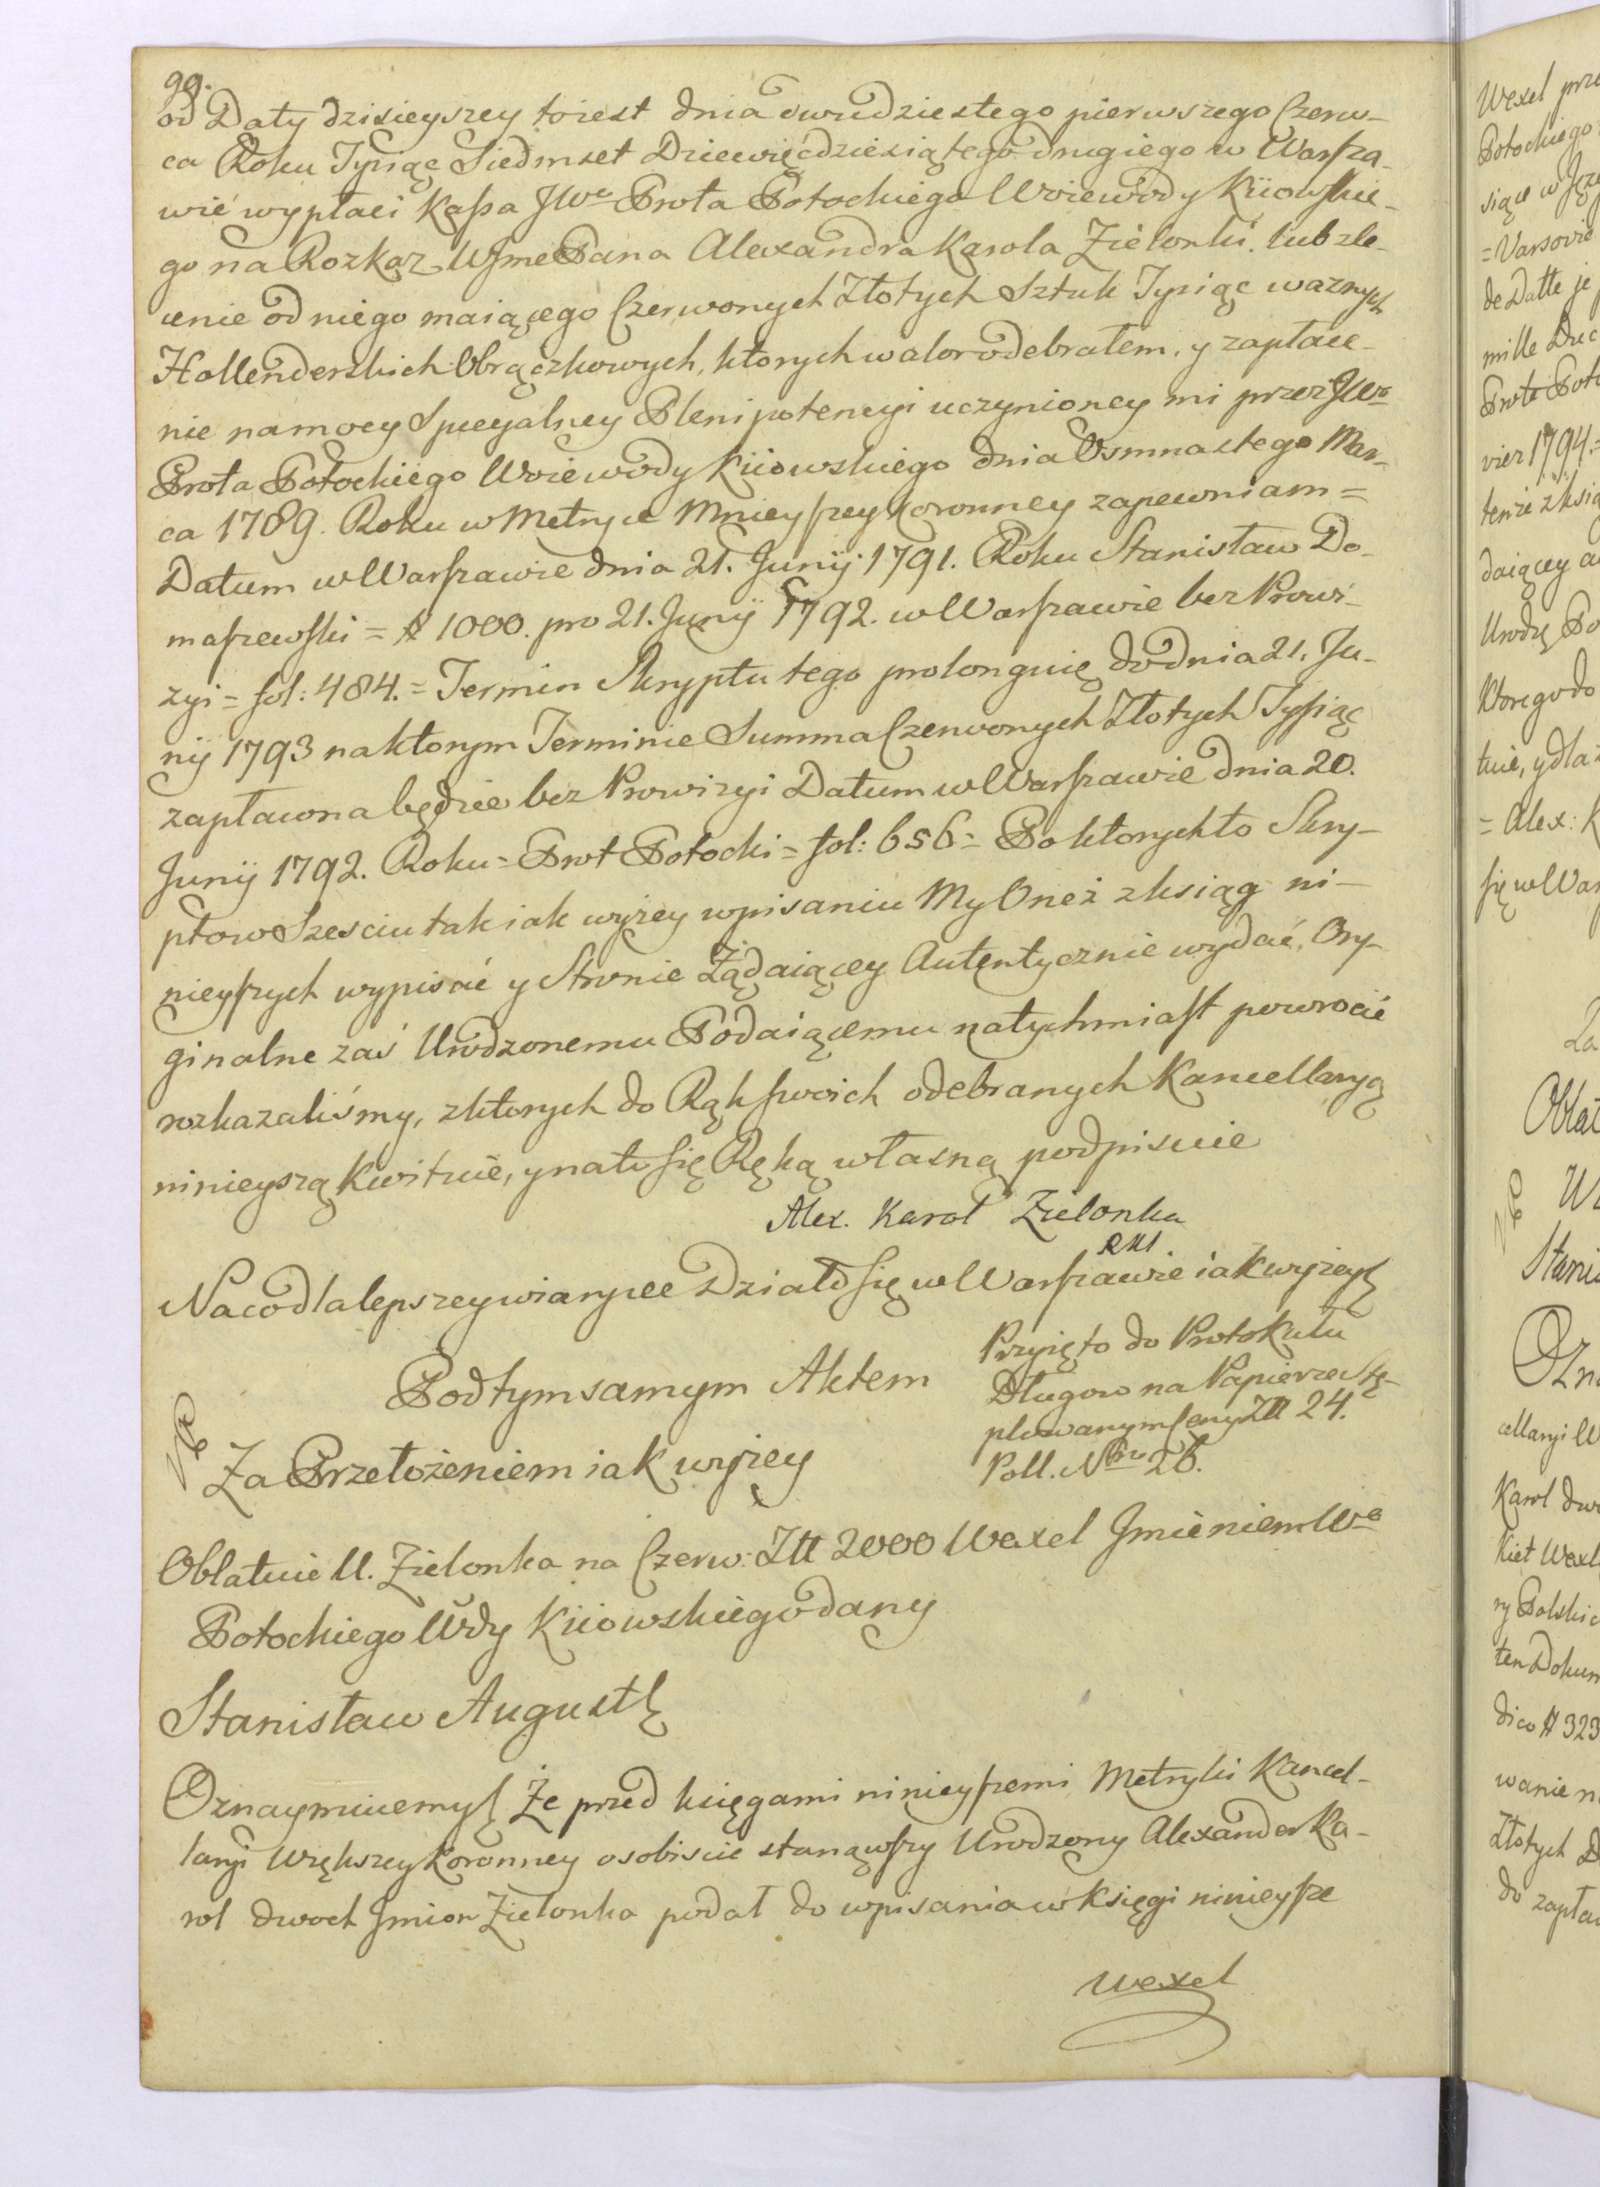 90.
od Daty dzisieyszey toiest dnia dwudziestego pierwszego Czerw-
ca Roku Tysiąc Siedmset Dziewięćdziesiątego drugiego w Warsza-
wie wypłaci Kassa JWo Prota Potockiego Woiewody Kiiowskie-
go na Rozkaz WJme Pana Alexandra Karola Zielonki lub zle-
cenie od niego maiącego Czerwonych Złotych Sztuk Tysiąc waznych
Hollenderskich Obrączkowych, ktorych walor odebrałem, y zapłace-
nie na mocy Specyalney Plenipotencyi uczynioney mi przez JWo
Prota Potockiego Woiewody Kiiowskiego dnia Osmnastego Mar-
ca 1789. Roku w Metryce Mnieyszey Koronney zapewniam =
Datum w Warszawie dnia 21. Junij 1791. Roku Stanisław Do-
maszewski = # 1000. pro 21. Junij 1792. w Warszawie bez Prowi-
zyi = fol: 484. = Termin Skryptu tego prolonguię do dnia 21. Ju-
nij 1793 na ktorym Terminie Summa Czerwonych Złotych Tysiąc
zapłacona będzie bez Prowizyi Datum w Warszawie dnia 20.
Junij 1792. Roku = Prot Potocki = fol: 656 = Po ktorychto Skry-
ptow Szesciu tak iak wyżey wpisaniu My Oneż z ksiąg ni-
nieyszych wypisać y Stronie Żądaiącey Autentycznie wydać, Ory-
ginalne zaś Urodzonemu Podaiącemu natychmiast powrocić
rozkazaliśmy, z ktorych do Rąk swoich odebranych Kancellaryą
ninieyszą kwituie, y na to się Ręką własną podpisuie
Alex. Karol Zielonka
Na co dla lepszey wiary ee Działo się w Warszawie iak wyżey
Pod tym samym Aktem
Przyięto do Protokułu
Długow na Papierze Stę-
plowanym Ceny Złł 24.
Poll. Nro 26.
Za Przełożeniem iak wyżey
Oblatuie U. Zielonka na Czerw: Złł 2000 Wexel Jmieniem Wo
Potockiego Wdy Kiiowskiego dany
Stanisław August
Oznaymuiemy Że przed księgami ninieyszemi Metryki Kancel-
laryi Większey Koronney osobiscie stanąwszy Urodzony Alexander Ka-
rol dwoch Jmion Zielonka podał do wpisania w Księgi ninieysze
wexel
Wexel prze
Potockiego
siące w Języ
= Varsovie
de Datte je
mille Duc
Prote Poto
vier 1794. =
tenże z ksią
daiącey au
Urodz Po
ktorego do
tuie, y dla
= Alex: K
się w War
Za
Oblat
Stanis
Ozna
cellaryi W
Karol dwo
Wexl
ry Polskie
ten Dokum
dico # 323
wanie n
Złotych D
do zapłac